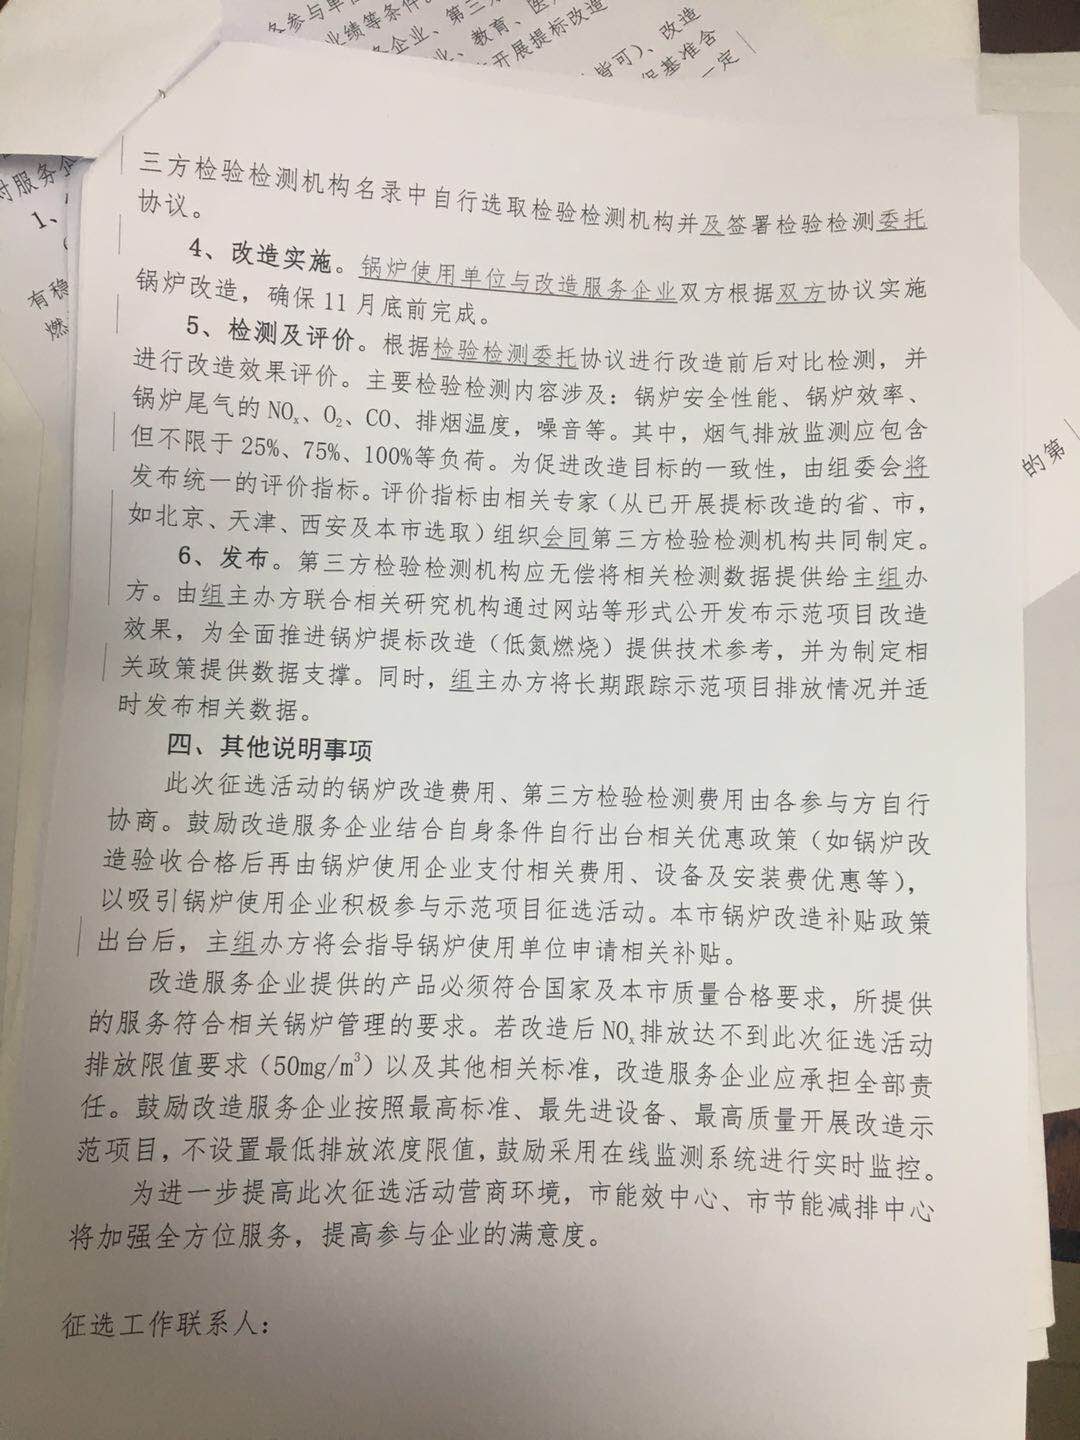 各参与单位
业绩等条件。
务企业、第三方
业、教育、医
开展提标改造
皆可）、改造
保基准含
一定
对服务企
1、
有稳
燃
的第
三方检验检测机构名录中自行选取检验检测机构并及签署检验检测委托
协议。
4、改造实施。锅炉使用单位与改造服务企业双方根据双方协议实施
锅炉改造，确保11月底前完成。
5、检测及评价。根据检验检测委托协议进行改造前后对比检测，并
进行改造效果评价。主要检验检测内容涉及：锅炉安全性能、锅炉效率、
锅炉尾气的NOx、O2、CO、排烟温度，噪音等。其中，烟气排放监测应包含
但不限于25%、75%、100%等负荷。为促进改造目标的一致性，由组委会将
发布统一的评价指标。评价指标由相关专家（从已开展提标改造的省、市，
如北京、天津、西安及本市选取）组织会同第三方检验检测机构共同制定。
6、发布。第三方检验检测机构应无偿将相关检测数据提供给主组办
方。由组主办方联合相关研究机构通过网站等形式公开发布示范项目改造
效果，为全面推进锅炉提标改造（低氮燃烧）提供技术参考，并为制定相
关政策提供数据支撑。同时，组主办方将长期跟踪示范项目排放情况并适
时发布相关数据。
四、其他说明事项
此次征选活动的锅炉改造费用、第三方检验检测费用由各参与方自行
协商。鼓励改造服务企业结合自身条件自行出台相关优惠政策（如锅炉改
造验收合格后再由锅炉使用企业支付相关费用、设备及安装费优惠等），
以吸引锅炉使用企业积极参与示范项目征选活动。本市锅炉改造补贴政策
出台后，主组办方将会指导锅炉使用单位申请相关补贴。
改造服务企业提供的产品必须符合国家及本市质量合格要求，所提供
的服务符合相关锅炉管理的要求。若改造后NOx排放达不到此次征选活动
排放限值要求（50mg/m³）以及其他相关标准，改造服务企业应承担全部责
任。鼓励改造服务企业按照最高标准、最先进设备、最高质量开展改造示
范项目，不设置最低排放浓度限值，鼓励采用在线监测系统进行实时监控。
为进一步提高此次征选活动营商环境，市能效中心、市节能减排中心
将加强全方位服务，提高参与企业的满意度。
征选工作联系人：